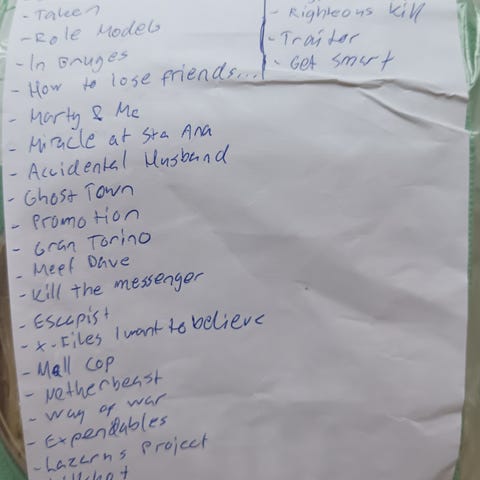 - Taken
- Role Models
- In Bruges
- How to lose friends...
- Marty & Me
- Miracle at Sta Ana
- Accidental Husband
- Ghost Town
- Promotion
- Gran Torino
- Meet Dave
- Kill the messenger
- Escapist
- X-Files I want to believe
- Mall Cop
- Netherbeast
- Way of war
- Expendables
- Lazarus Project
- Righteous Kill
- Traitor
- Get smart